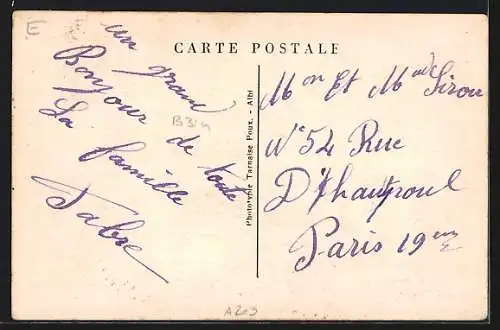 E
CARTE POSTALE
un grand
Bonjour de toute
La famille
Fabre
B3in
Phototypie Tarnaise Poux. - Albi
Mon Et Made Siron
N° 54 Rue
D'hautpoul
Paris 19em
A203